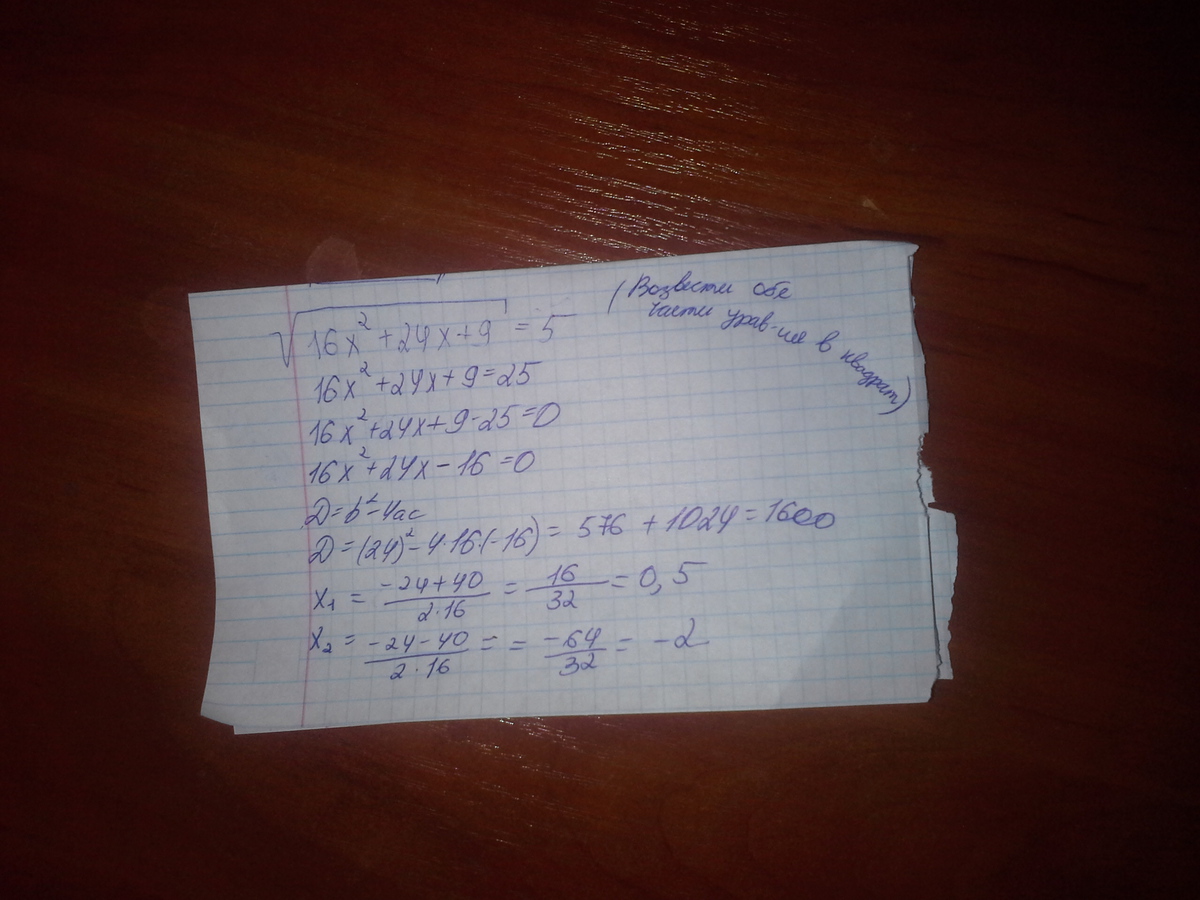 √16x²+24x+9 = 5
(Возвести обе
части урав-ия в квадрат)
16x²+24x+9=25
16x²+24x+9-25=0
16x²+24x-16=0
D=b²-4ac
D=(24)²-4·16·(-16)= 576 + 1024=1600
x₁ = (-24+40)/(2·16) = 16/32 = 0,5
x₂ = (-24-40)/(2·16) = = -64/32 = -2